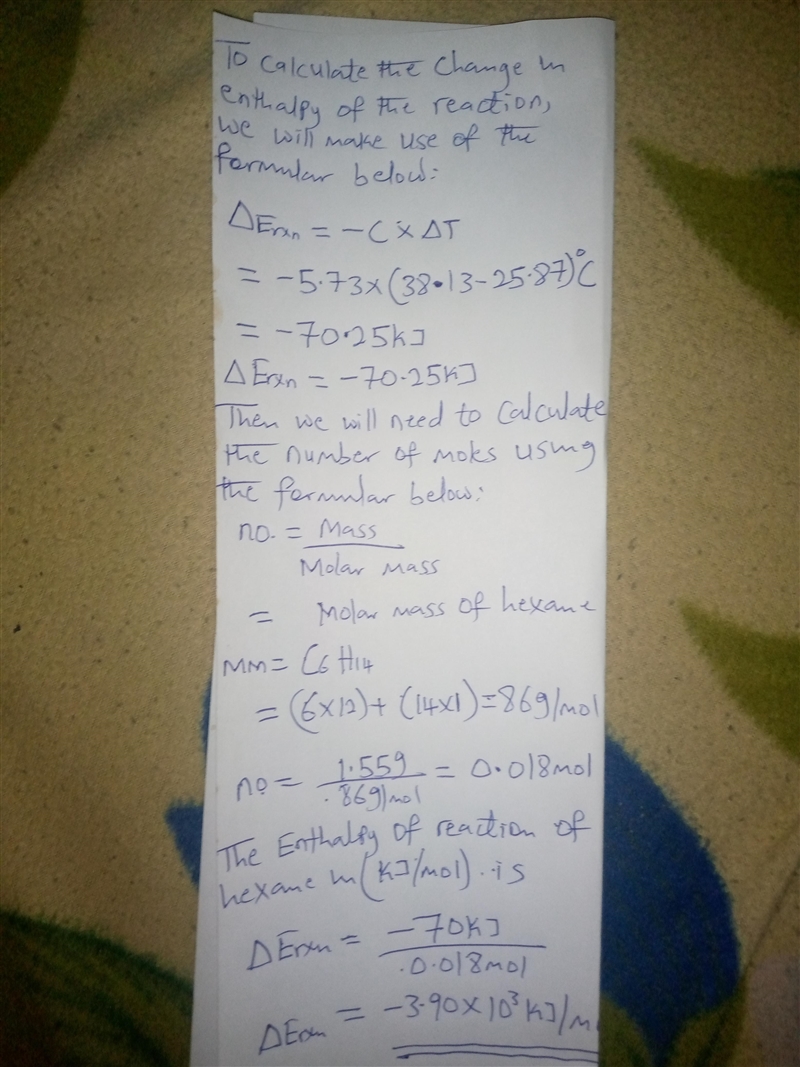 To calculate the change in
enthalpy of the reaction,
we will make use of the
formular below:
ΔErxn = -C × ΔT
= -5.73×(38.13-25.87)°C
= -70.25kJ
ΔErxn = -70.25kJ
Then we will need to calculate
the number of moks using
the formular below:
no. = Mass
Molar mass
= Molar mass of hexane
MM= C6H14
= (6×12)+(14×1)=86g/mol
no = 1.55g = 0.018mol
.86g/mol
The Enthalpy of reaction of
hexane in (kJ/mol).is
ΔErxn = -70kJ
.0.018mol
ΔErxn = -3.90×10³ kJ/m